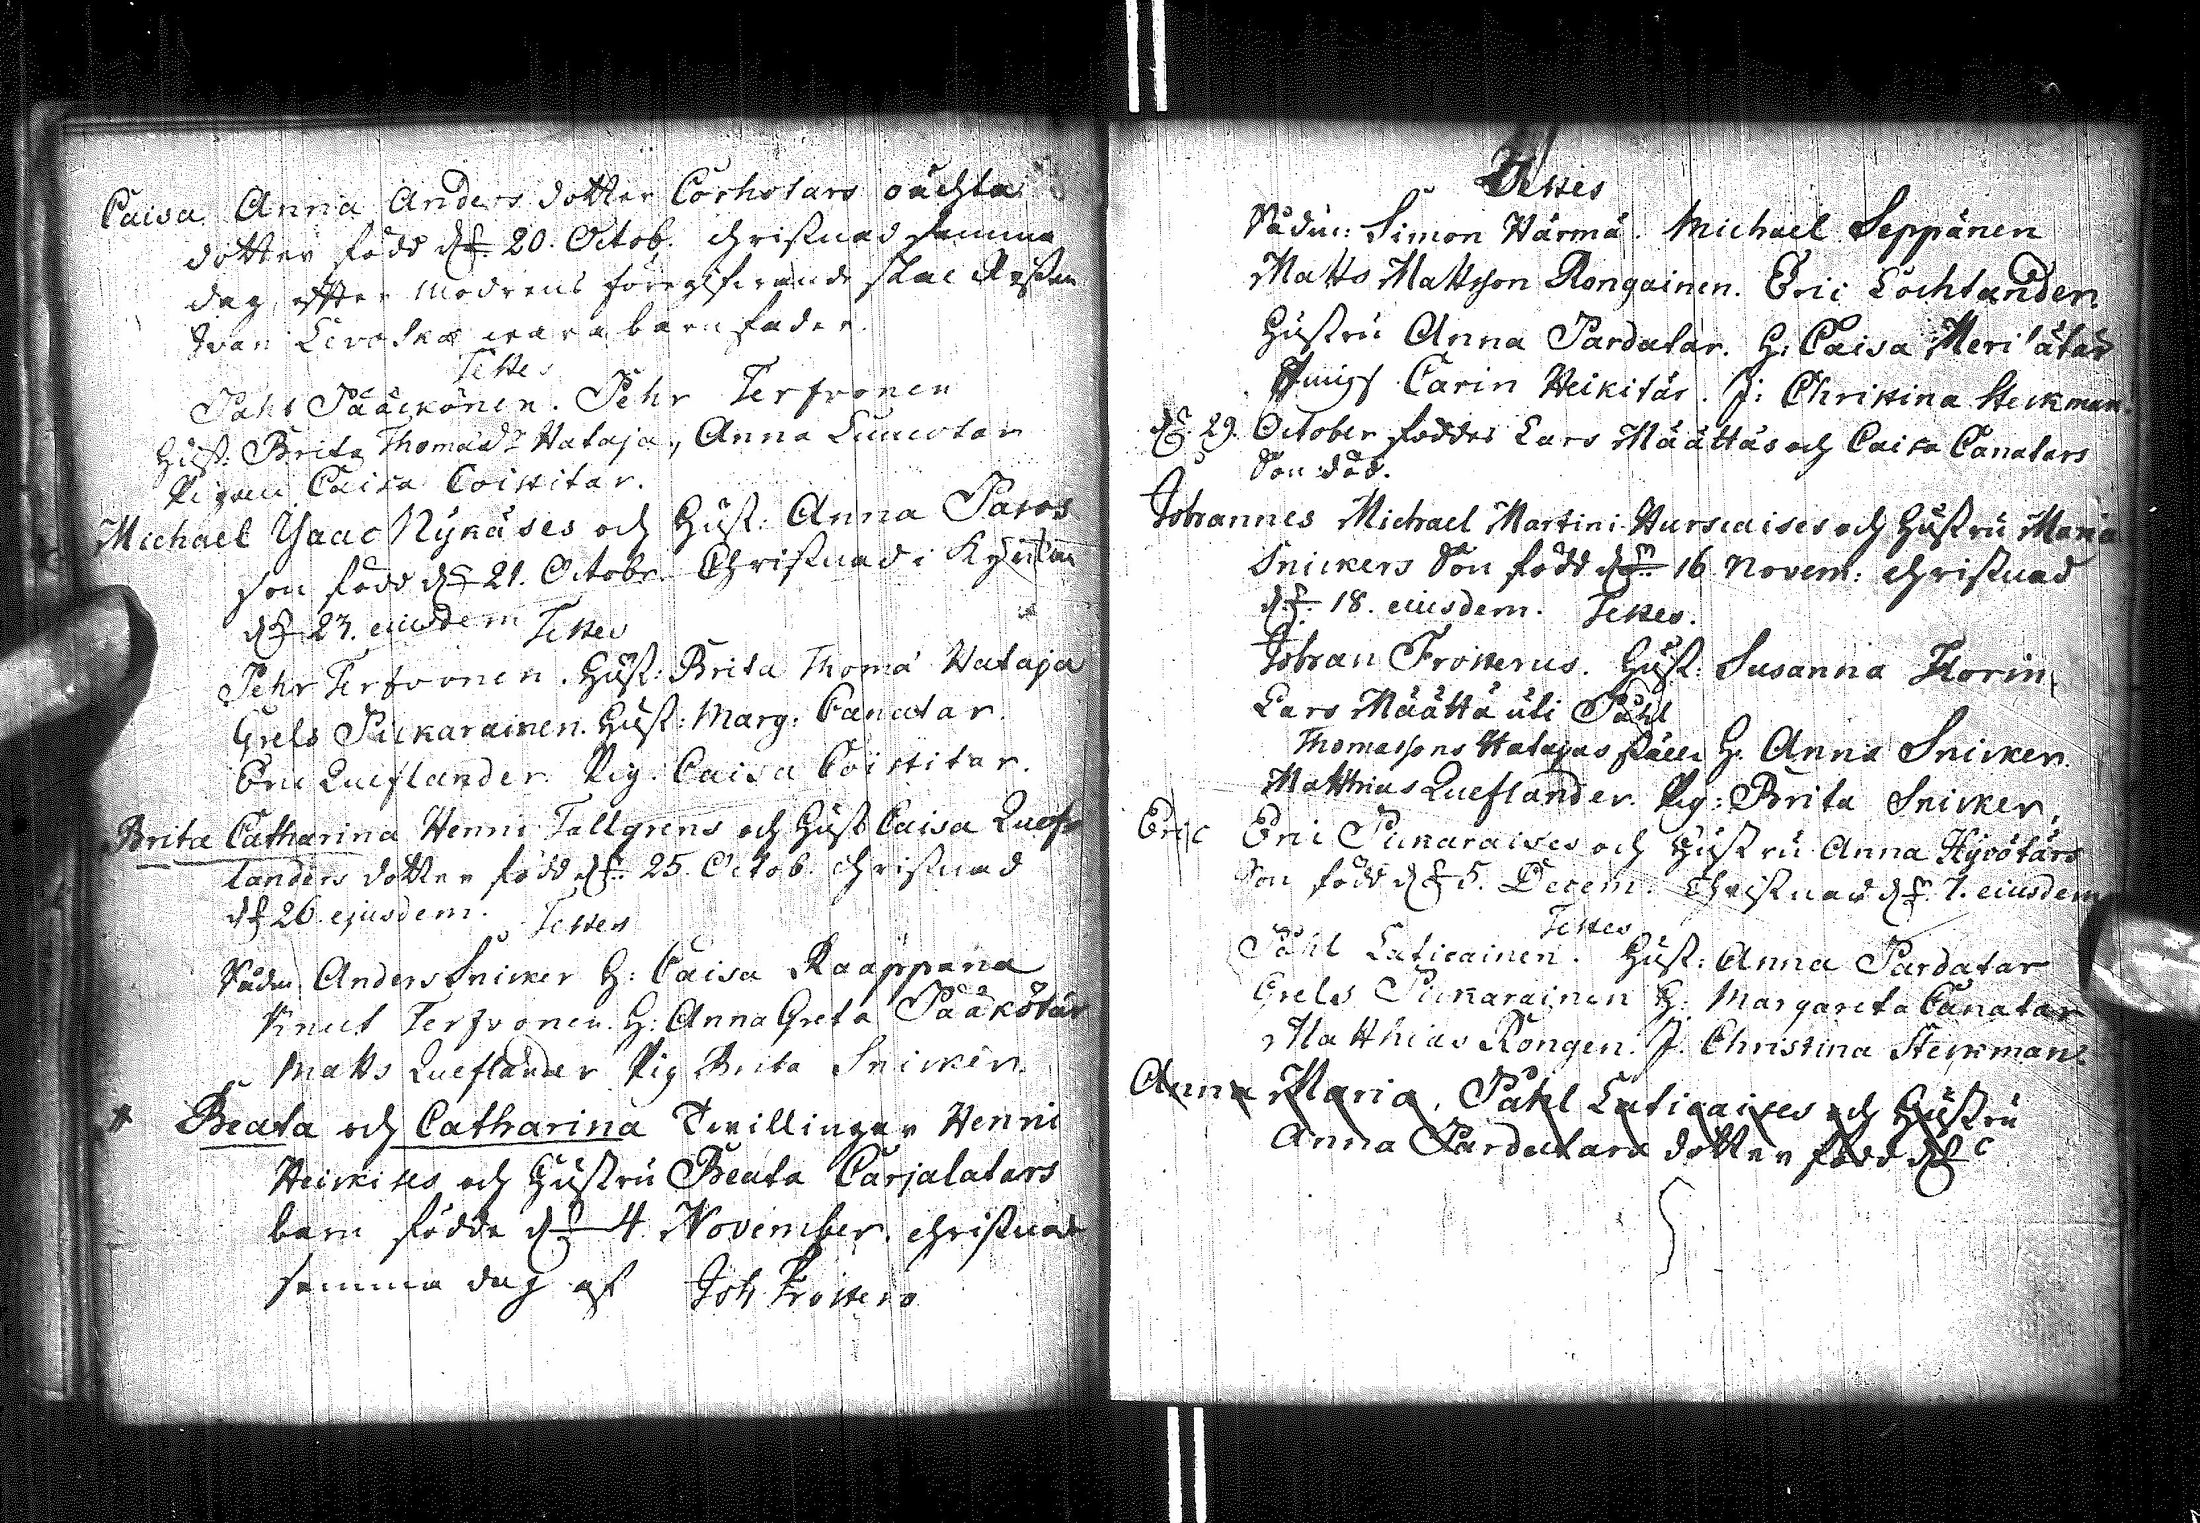 Caisa Anna Anders dotter Corhotars oächta
dotter född d. 20. Octob. christnad samma
dag, effter modrens föregifvande skal Ryssen
Ivan wara barnfader.
Testes
Påhl Pääckönen. Pehr Terfvonen
Hust: Brita Thomæd:r Hataja, Anna
Pigan Caisa Coistitar.
Michael Ysaac Nykäses och Hust: Anna
son född d. 21. Octobr. Christnad i
d. 23. eiusdem Testes
Pehr Terfvonen. Hust: Brita Thomæ Hataja
Grels Pickarainen. Hust: Marg: Canatar.
Eric Lueflander. Pig: Caisa Coistitar.
Brita Catharina Henric Tallgrens och Hust Caisa Luef-
landers dotter född d. 25. Octob. christnad
d. 26 ejusdem. Testes
Anders Snicker H: Caisa Kaappana
Knut Terfvonen. H: Anna Greta Pääkötär
Matts Lueflander Pig Brita Snicker.
Beata och Catharina Tvillingar Henric
Heickises och Hustru Beata Carjalatars
barn födde d. 4 November. christnade
samma dag af Joh. Frosterus
Testes
Simon Härmä. Michael Seppänen
Matts Mattsson Rongainen. Eric Lochlander.
Hustru Anna Pardatar. H: Caisa Merilätär
Carin Heikitär. J: Christina Steckman.
d. 29. October föddes Lars Määttäs och Caisa Canatars
Son död.
Johannes Michael Martini Hurscaises och Hustru Maria
Snickers Son född d. 16 Novem: christnad
d. 18. eiusdem. Testes.
Johan Frosterus. Hust: Susanna Florin,
Lars Määttä uti Påhl
Thomassons Hatajas ställe H. Anna Snicker.
Matthias Lueflander. Pig: Brita Snicker,
Eric Eric Pickaraises och Hustru Anna Hyvötärs
Son född d. 5. Decem. Christnad d. 7. eiusdem
Testes
Påhl Laticainen. Hust: Anna Pardatar
Grels Pickarainen H. Margareta Canatar
Matthias Rongen. J. Christina Steckman.
Anna Maria, Påhl Laticaises och Hustru
Anna Pardatars dotter född d.